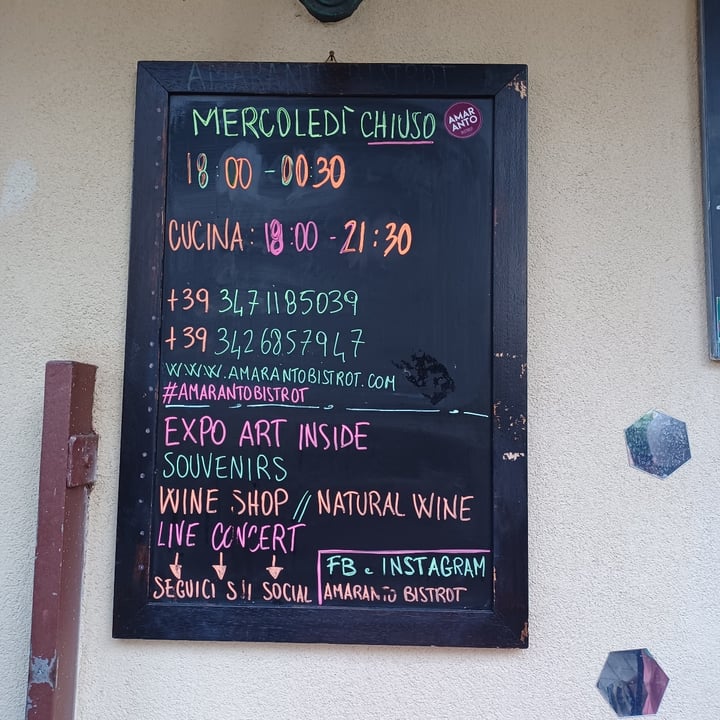 AMARANTO BISTROT
MERCOLEDÌ CHIUSO
AMAR
ANTO
18:00 - 00:30
CUCINA: 18:00 - 21:30
+39 3471185039
+39 3426857947
WWW.AMARANTOBISTROT.COM
#AMARANTOBISTROT
EXPO ART INSIDE
SOUVENIRS
WINE SHOP // NATURAL WINE
LIVE CONCERT
FB e INSTAGRAM
SEGUICI SUI SOCIAL
AMARANTO BISTROT